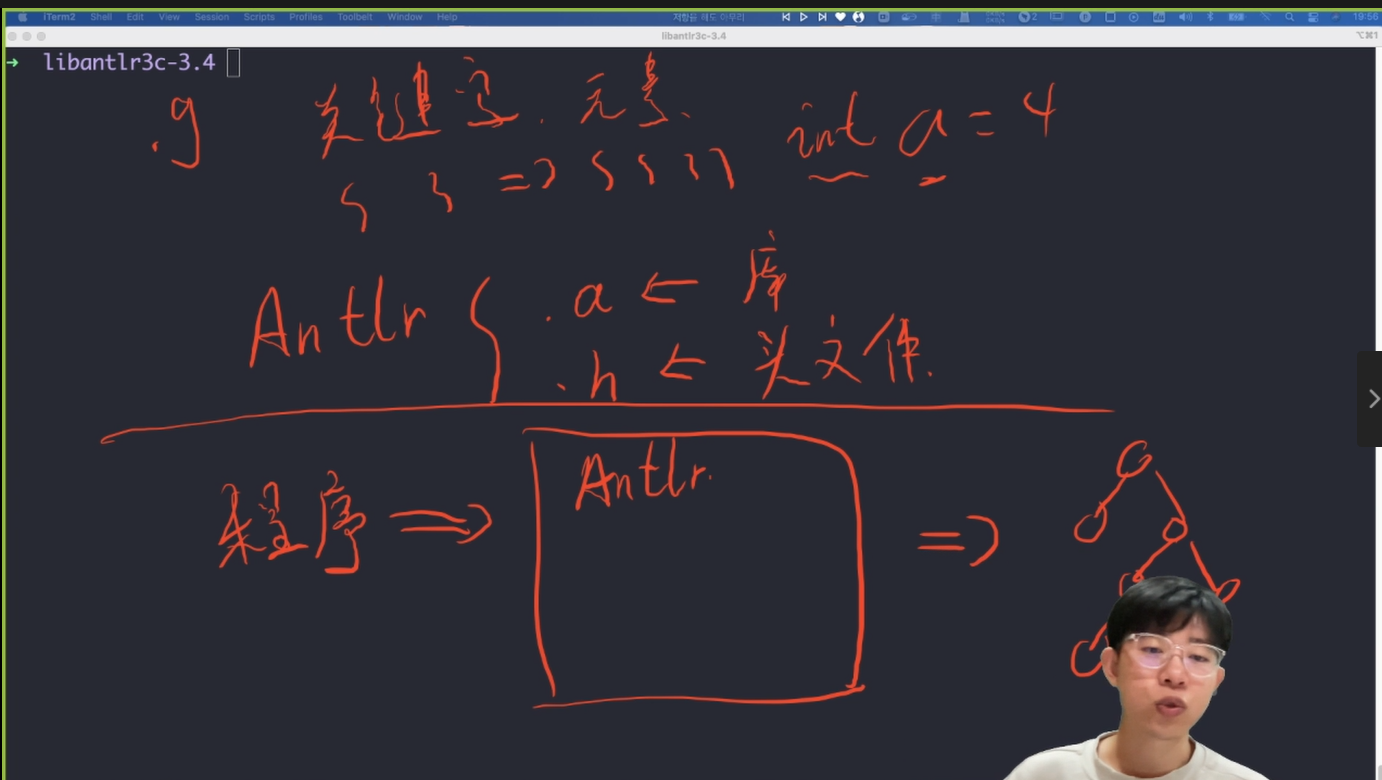 iTerm2 Shell Edit View Session Scripts Profiles Toolbelt Window Help 저항을 해도 아무리 2 19:56
libantlr3c-3.4 ⌥⌘1
→ libantlr3c-3.4
.g 关键字. 元素、 int a = 4
=>
Antlr { .a ← 库
.h ← 头文件.
程序 => Antlr. =>